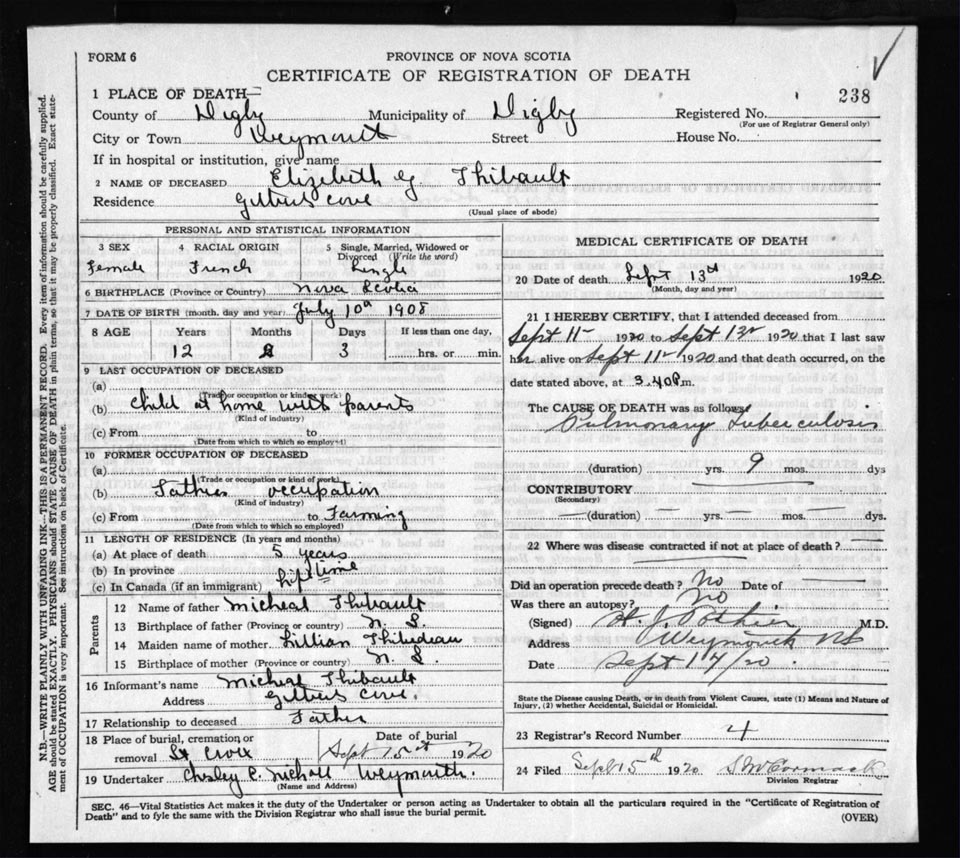 FORM 6
PROVINCE OF NOVA SCOTIA
CERTIFICATE OF REGISTRATION OF DEATH
238
1 PLACE OF DEATH—
County of Digby Municipality of Digby Registered No.
(For use of Registrar General only)
City or Town Weymouth Street House No.
If in hospital or institution, give name
2 NAME OF DECEASED Elizabeth Thibault
Residence Gilberts Cove
(Usual place of abode)
PERSONAL AND STATISTICAL INFORMATION
3 SEX 4 RACIAL ORIGIN 5 Single, Married, Widowed or Divorced (Write the word)
Female French Single
6 BIRTHPLACE (Province or Country) Nova Scotia
7 DATE OF BIRTH (month, day and year) July 10th 1908
8 AGE Years Months Days If less than one day,
12 2 3 hrs. or min.
9 LAST OCCUPATION OF DECEASED
(a)
(Trade or occupation or kind of work)
(b) Child at home with parents
(Kind of industry)
(c) From to
(Date from which to which so employed)
10 FORMER OCCUPATION OF DECEASED
(a)
(Trade or occupation or kind of work)
(b) Fathers occupation
(Kind of industry)
(c) From to Farming
(Date from which to which so employed)
11 LENGTH OF RESIDENCE (In years and months)
(a) At place of death 5 years
(b) In province
(c) In Canada (if an immigrant) life time
Parents
12 Name of father Micheal Thibault
13 Birthplace of father (Province or country) N. S.
14 Maiden name of mother Lillian Thibudeau
15 Birthplace of mother (Province or country) N. S.
16 Informant's name Micheal Thibault
Address Gilberts Cove.
17 Relationship to deceased Father
18 Place of burial, cremation or removal St Croix Date of burial Sept 15th 1920
19 Undertaker Chesley E. Nichols Weymouth.
(Name and Address)
MEDICAL CERTIFICATE OF DEATH
20 Date of death Sept 13th 1920
(Month, day and year)
21 I HEREBY CERTIFY, that I attended deceased from
Sept 11 1920 to Sept 13 1920 that I last saw
her alive on Sept 11 1920 and that death occurred, on the
date stated above, at 3.40 P.m.
The CAUSE OF DEATH was as follows:
Pulmonary Tuberculosis
(duration) yrs. 9 mos. dys
CONTRIBUTORY
(Secondary)
(duration) yrs. mos. dys.
22 Where was disease contracted if not at place of death?
Did an operation precede death? No Date of
Was there an autopsy? No
(Signed) H. J. Pothier M.D.
Address Weymouth NS
Date Sept 14/20.
State the Disease causing Death, or in death from Violent Causes, state (1) Means and Nature of
Injury, (2) whether Accidental, Suicidal or Homicidal.
23 Registrar's Record Number 4
24 Filed Sept 15th 1920 S McCormack
Division Registrar
SEC. 46—Vital Statistics Act makes it the duty of the Undertaker or person acting as Undertaker to obtain all the particulars required in the "Certificate of Registration of
Death" and to fyle the same with the Division Registrar who shall issue the burial permit.
(OVER)
N.B.—WRITE PLAINLY WITH UNFADING INK—THIS IS A PERMANENT RECORD. Every item of information should be carefully supplied.
AGE should be stated EXACTLY. PHYSICIANS should STATE CAUSE OF DEATH in plain terms, so that it may be properly classified. Exact state-
ment of OCCUPATION is very important. See instructions on back of Certificate.